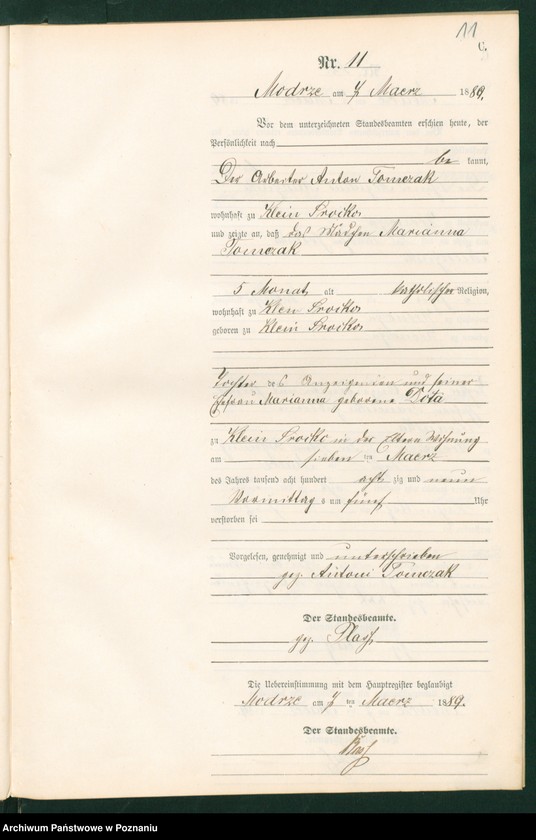 11
C.
Nr. 11
Modrze am 7 Maerz 1889.
Vor dem unterzeichneten Standesbeamten erschien heute, der
Persönlichkeit nach
be kannt,
Der Arbeiter Anton Tomczak
wohnhaft zu Klein Srocko
und zeigte an, daß das Mädchen Marianna
Tomczak
5 Monat alt katholischer Religion,
wohnhaft zu Klein Srocko
geboren zu Klein Srocko
Tochter des Anzeigenden und seiner
Ehefrau Marianna geborene Dota
zu Klein Srocko in der Wohnung
am sieben ten Maerz
des Jahres tausend acht hundert acht zig und neun
Vormittag s um fünf Uhr
verstorben sei
Vorgelesen, genehmigt und unterschrieben
gez. Antoni Tomczak
Der Standesbeamte.
gez.
Die Uebereinstimmung mit dem Hauptregister beglaubigt
Modrze am 7 ten Maerz 1889.
Der Standesbeamte.
Archiwum Państwowe w Poznaniu